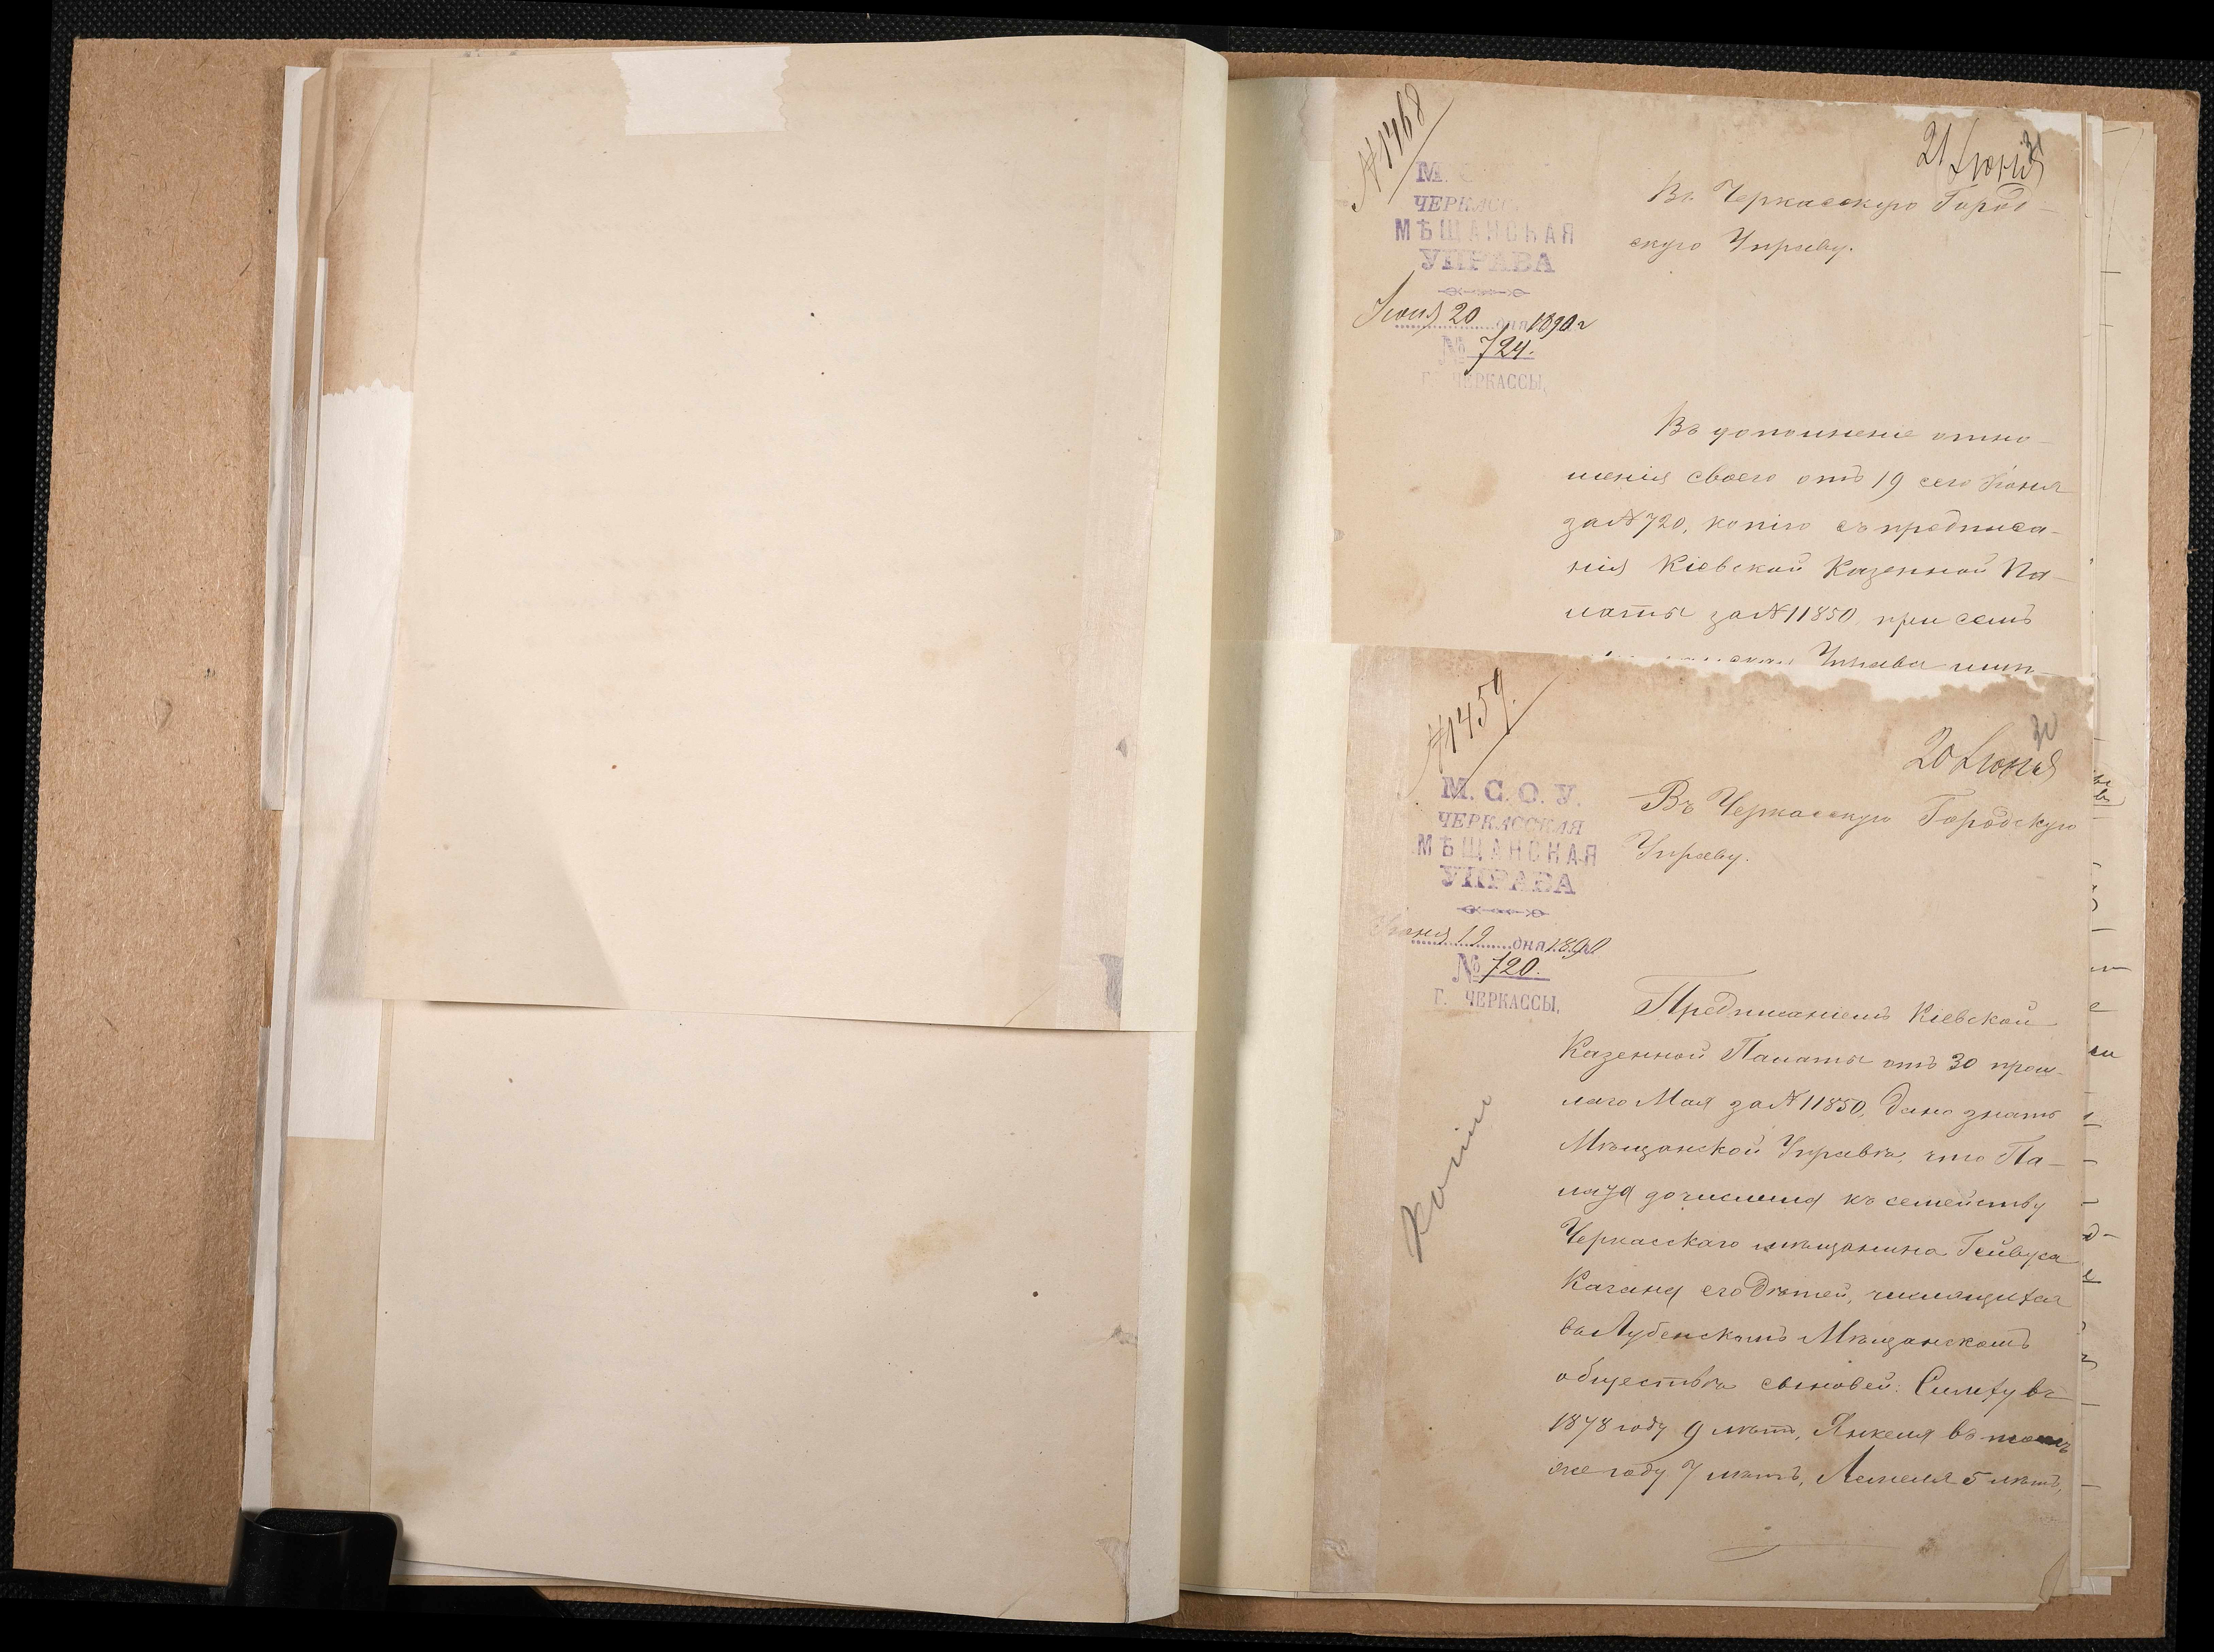 № 1468
21 Июня
31
М.
ЧЕРКАСС
МѢЩАНСКАЯ
УПРАВА
Июня 20 дня 1890 г
№ 724.
Г. ЧЕРКАССЫ,
Въ Черкасскую Город-
скую Управу.
Въ дополненіе отно-
шенія своего отъ 19 сего Іюня
за № 720, копію съ предписа-
нія Кіевской Казенной Па-
латы за № 11850, при семъ
Управа
№ 1459.
20 Июня
30
М. С. О. У.
ЧЕРКАССКАЯ
МѢЩАНСКАЯ
УПРАВА
Июня 19 дня 1890
№ 720.
Г. ЧЕРКАССЫ,
Въ Черкасскую Городскую
Управу.
Копіи
Предписаніемъ Кіевской
Казенной Палаты отъ 30 прош-
лаго Мая за № 11850, дано знать
Мѣщанской Управѣ, что Па-
лата дочислила къ семейству
Черкасскаго мѣщанина Гейвуса
Кагана его дѣтей, числящихся
въ Лубенскомъ Мѣщанскомъ
обществѣ сыновей: Симху въ
1878 году 9 лѣтъ, Янкеля въ томъ
же году 7 лѣтъ, 5 лѣтъ,